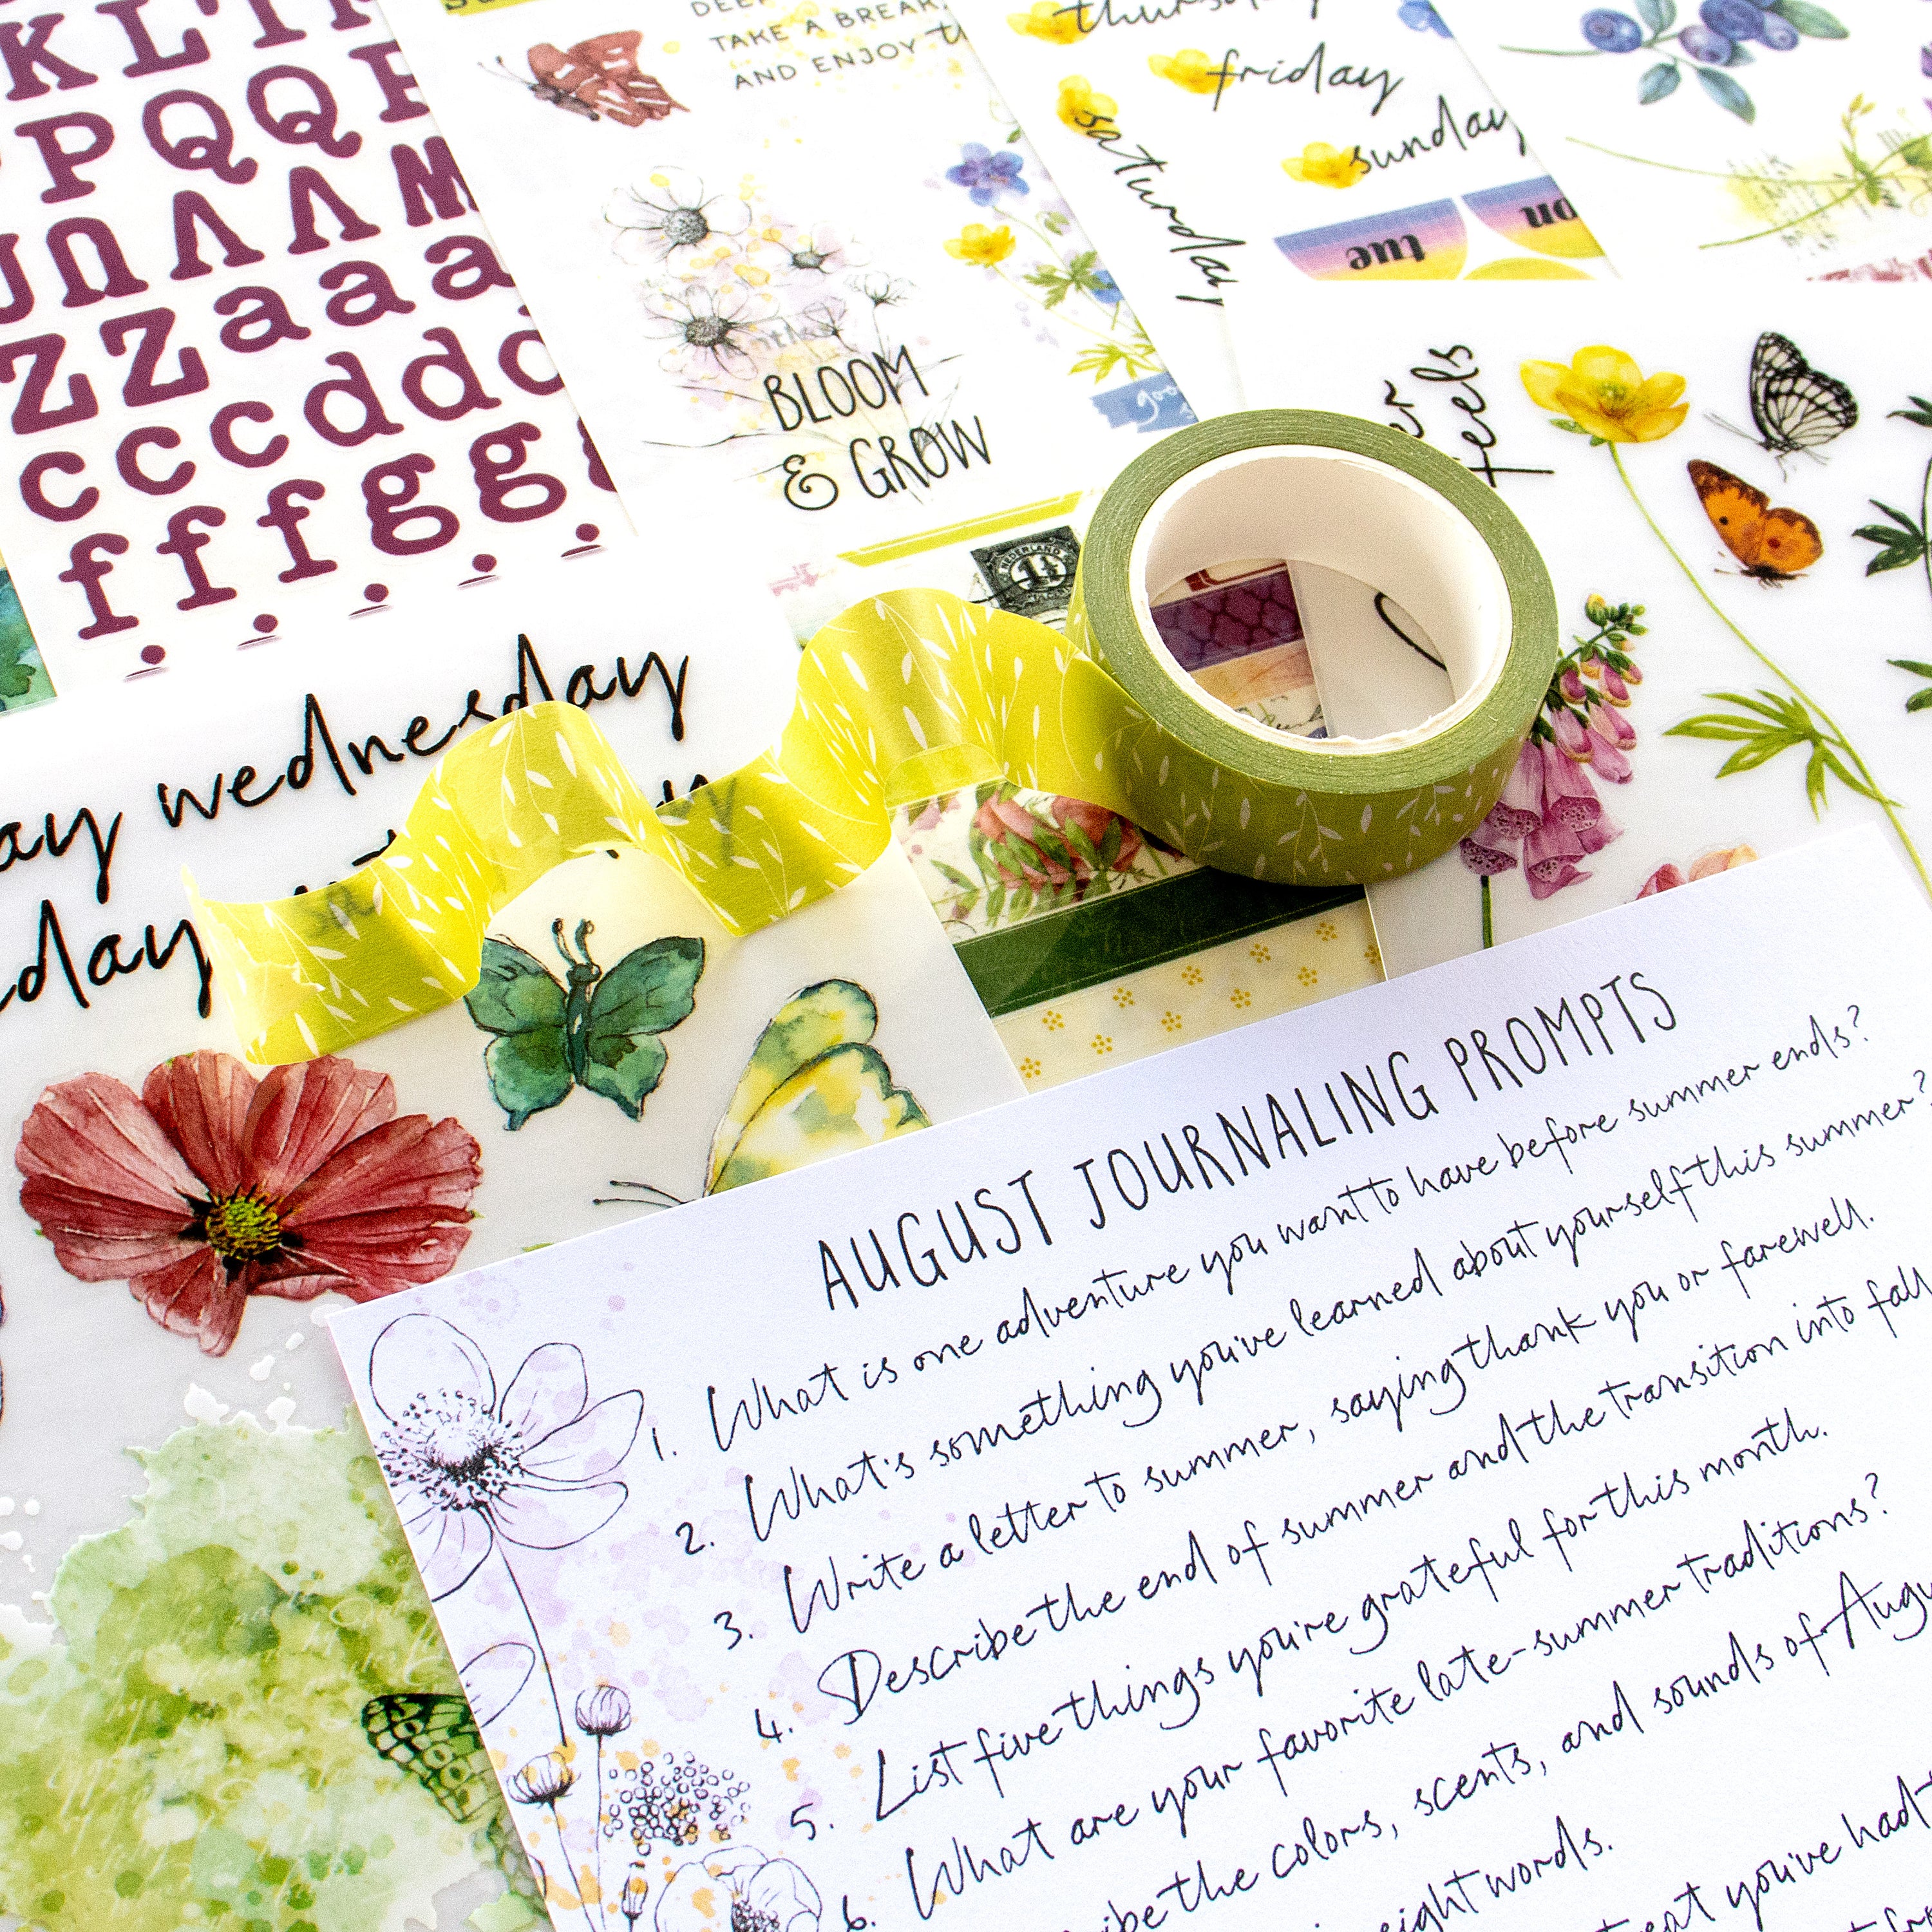 DEEP
TAKE A BREAK,
AND ENJOY
thursday
friday
saturday
sunday
tue
K L
P P Q Q
Z Z a a a
c c c d d d
f f f g g
BLOOM
& GROW
goo
feels
NEDERLAND
wednesday
day
AUGUST JOURNALING PROMPTS
1. What is one adventure you want to have before summer ends?
2. What's something you've learned about yourself this summer?
3. Write a letter to summer, saying thank you or farewell.
4. Describe the end of summer and the transition into fall
5. List five things you're grateful for this month.
6. What are your favorite late-summer traditions?
ibe the colors, scents, and sounds of Augu
eight words.
eat you've had t